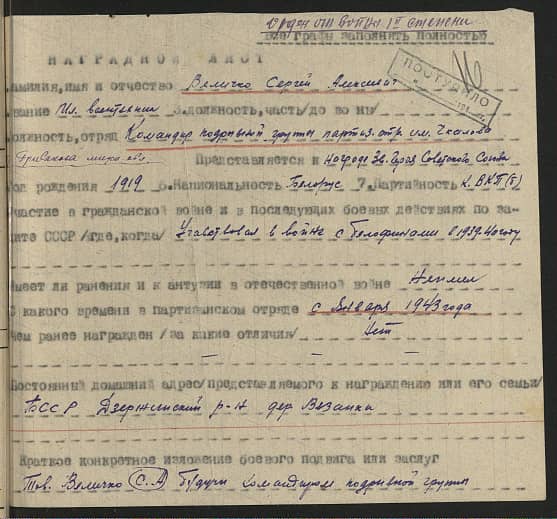 Орден От войны II степени
все графы заполнить полностью
НАГРАДНОЙ ЛИСТ
ПОСТУПИЛО
амилия, имя и отчество Величко Сергей Алексеев.
вание Мл. воентехник 3. должность, часть/до во ны/
олжность, отряд Командир подрывной группы партиз. отр. им. Чкалова
бригада Представляется к Награде Зв. Героя Советского Союза
од рождения 1919 6. Национальность Белорус 7. Партийность К. ВКП(б)
частие в гражданской войне и в последующих боевых действиях по за-
ите СССР /где, когда/ Участвовал в войне с Белофинами в 1939-40 году
меет ли ранения и к антузии в отечественной войне Не имел
С какого времени в партизанском отряде с Января 1943 года
Чем ранее награжден /за какие отличия/ Нет
— — —
Постоянный домашний адрес/представляемого к награждение или его семьи/
БССР Дзержинский р-н дер Вязанка
Краткое конкретное изложение боевого подвига или заслуг
Тов. Величко (С. А) будучи командиром подрывной группы